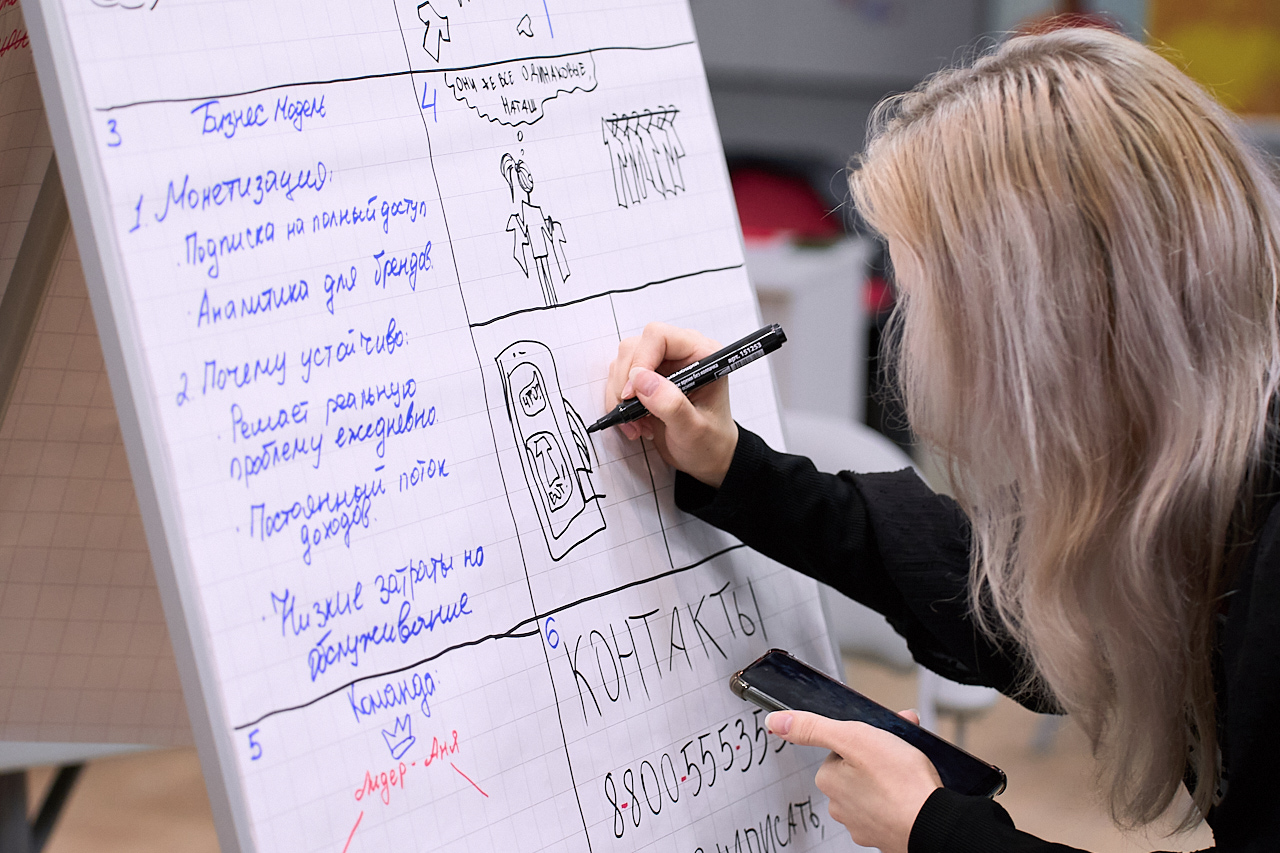 3
Бизнес Модель
1. Монетизация:
· Подписка на полный доступ
· Аналитика для брендов.
2. Почему устойчиво:
· Решает реальную
проблему ежедневно.
· Постоянный поток
доходов.
· Низкие затраты на
обслуживание
4
ОНИ ЖЕ ВСЕ ОДИНАКОВЫЕ,
НАТАШ
5
Команда:
Лидер - Аня
6
КОНТАКТЫ
8-800-555-35
арт. 151253